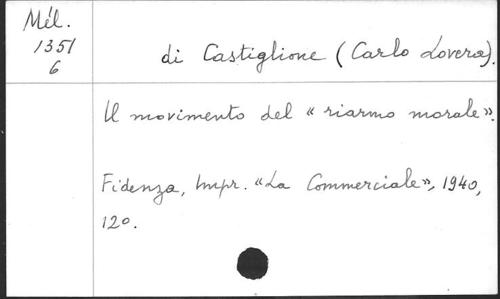 Mél.
1351
6
di Castiglione (Carlo Lovera).
Il movimento del « riarmo morale».
Fidenza, Impr. «La Commerciale», 1940,
12º.